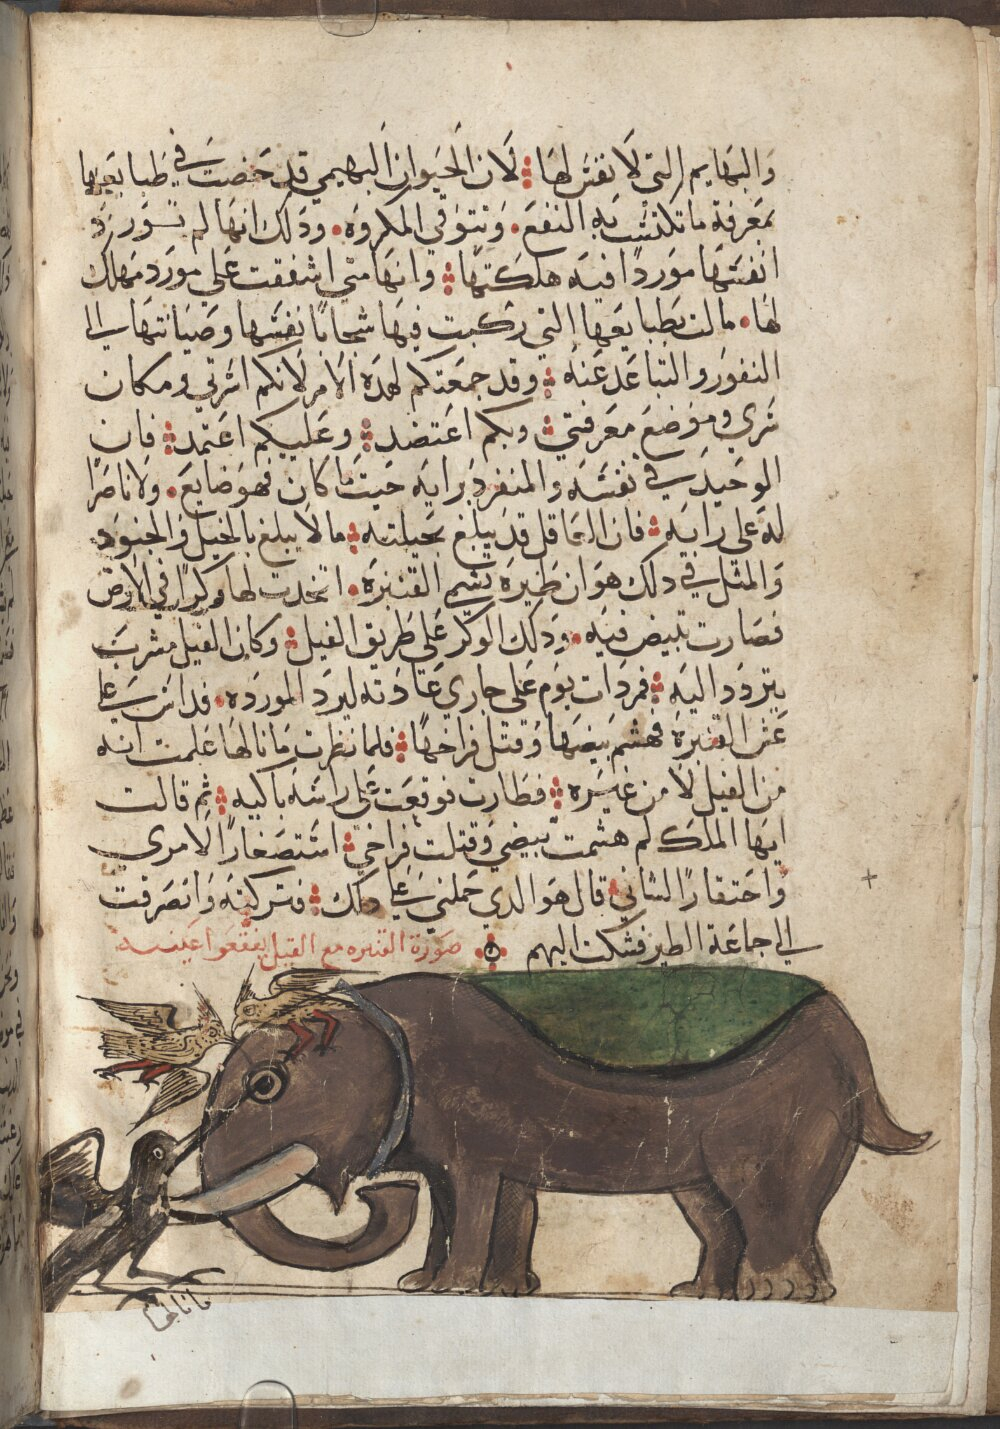 والبهايم التي لا نفس لها لان الحيوان البهيمي قد خصت في طبايعها
بمعرفة ما تكتسب به النفع وتتوقي المكروه ودلك انها لم تورد
انفسها موردا فيه هلكتها وانها متي اشفقت علي مورد مهلك
لها مالت بطبايعها التي ركبت فيها شحا بانفسها وصيانتها الي
النفور والتباعد عنه وقد جمعتكم لهده الامر لانكم اسرتي ومكان
سري وموضع معرفتي وبكم اعتضد وعليكم اعتمد فان
الوحيد في نفسه والمنفرد برايه حيث ما كان فهو ضايع ولا ناصرا
له علي رايه فان العاقل قد يبلغ بحيلته ما لا يبلغ بالخيل والجنود
والمثل في دلك هو ان طيره تسمي القنبره اتخدت لها وكرا في الارض
فصارت تبيض فيه ودلك الوكر علي طريق الفيل وكان للفيل مشرب
يتردد اليه فمر دات يوم علي جاري عادته ليرد المورده فداس علي
عش القنبره فهشم بيضها وقتل فراخها فلما نظرت ما نالها علمت انه
من الفيل لا من غيره فطارت فوقعت علي راسه باكيه ثم قالت
ايها الملك لم هشمت بيضي وقتلت فراخي استصغارا لامري
واحتقارا لشاني قال هو الدي حملني علي دلك فتركته وانصرفت
الي جماعة الطير فشكت اليهم صورة القنبره مع الفيل يفقعوا عينيه
ما نالها